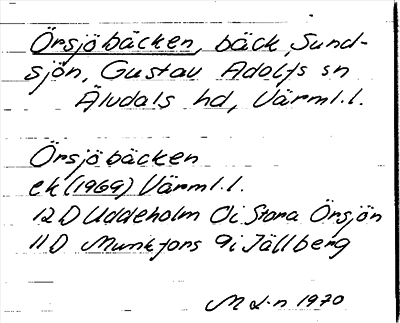 Örsjöbäcken, bäck, Sund-
sjön, Gustav Adolfs sn
Älvdals hd, Värml.l.
Örsjöbäcken
ek (1969) Värml.l.
12 D Uddeholm 0i Stora Örsjön
11 D Munkfors 9i Jällberg
M L-n 1970